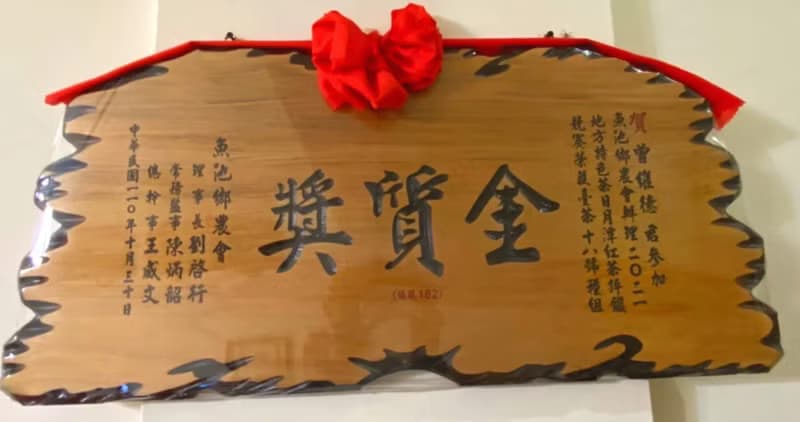 賀曾继德君參加
魚池鄉農會辦理二〇二一
地方特色茶日月潭紅茶評鑑
競賽榮獲臺茶十八號種組
金質獎
(編號162)
魚池鄉農會
理事長劉啓行
常務監事陳炳韶
總幹事王威文
中華民國一一〇年十月三十日